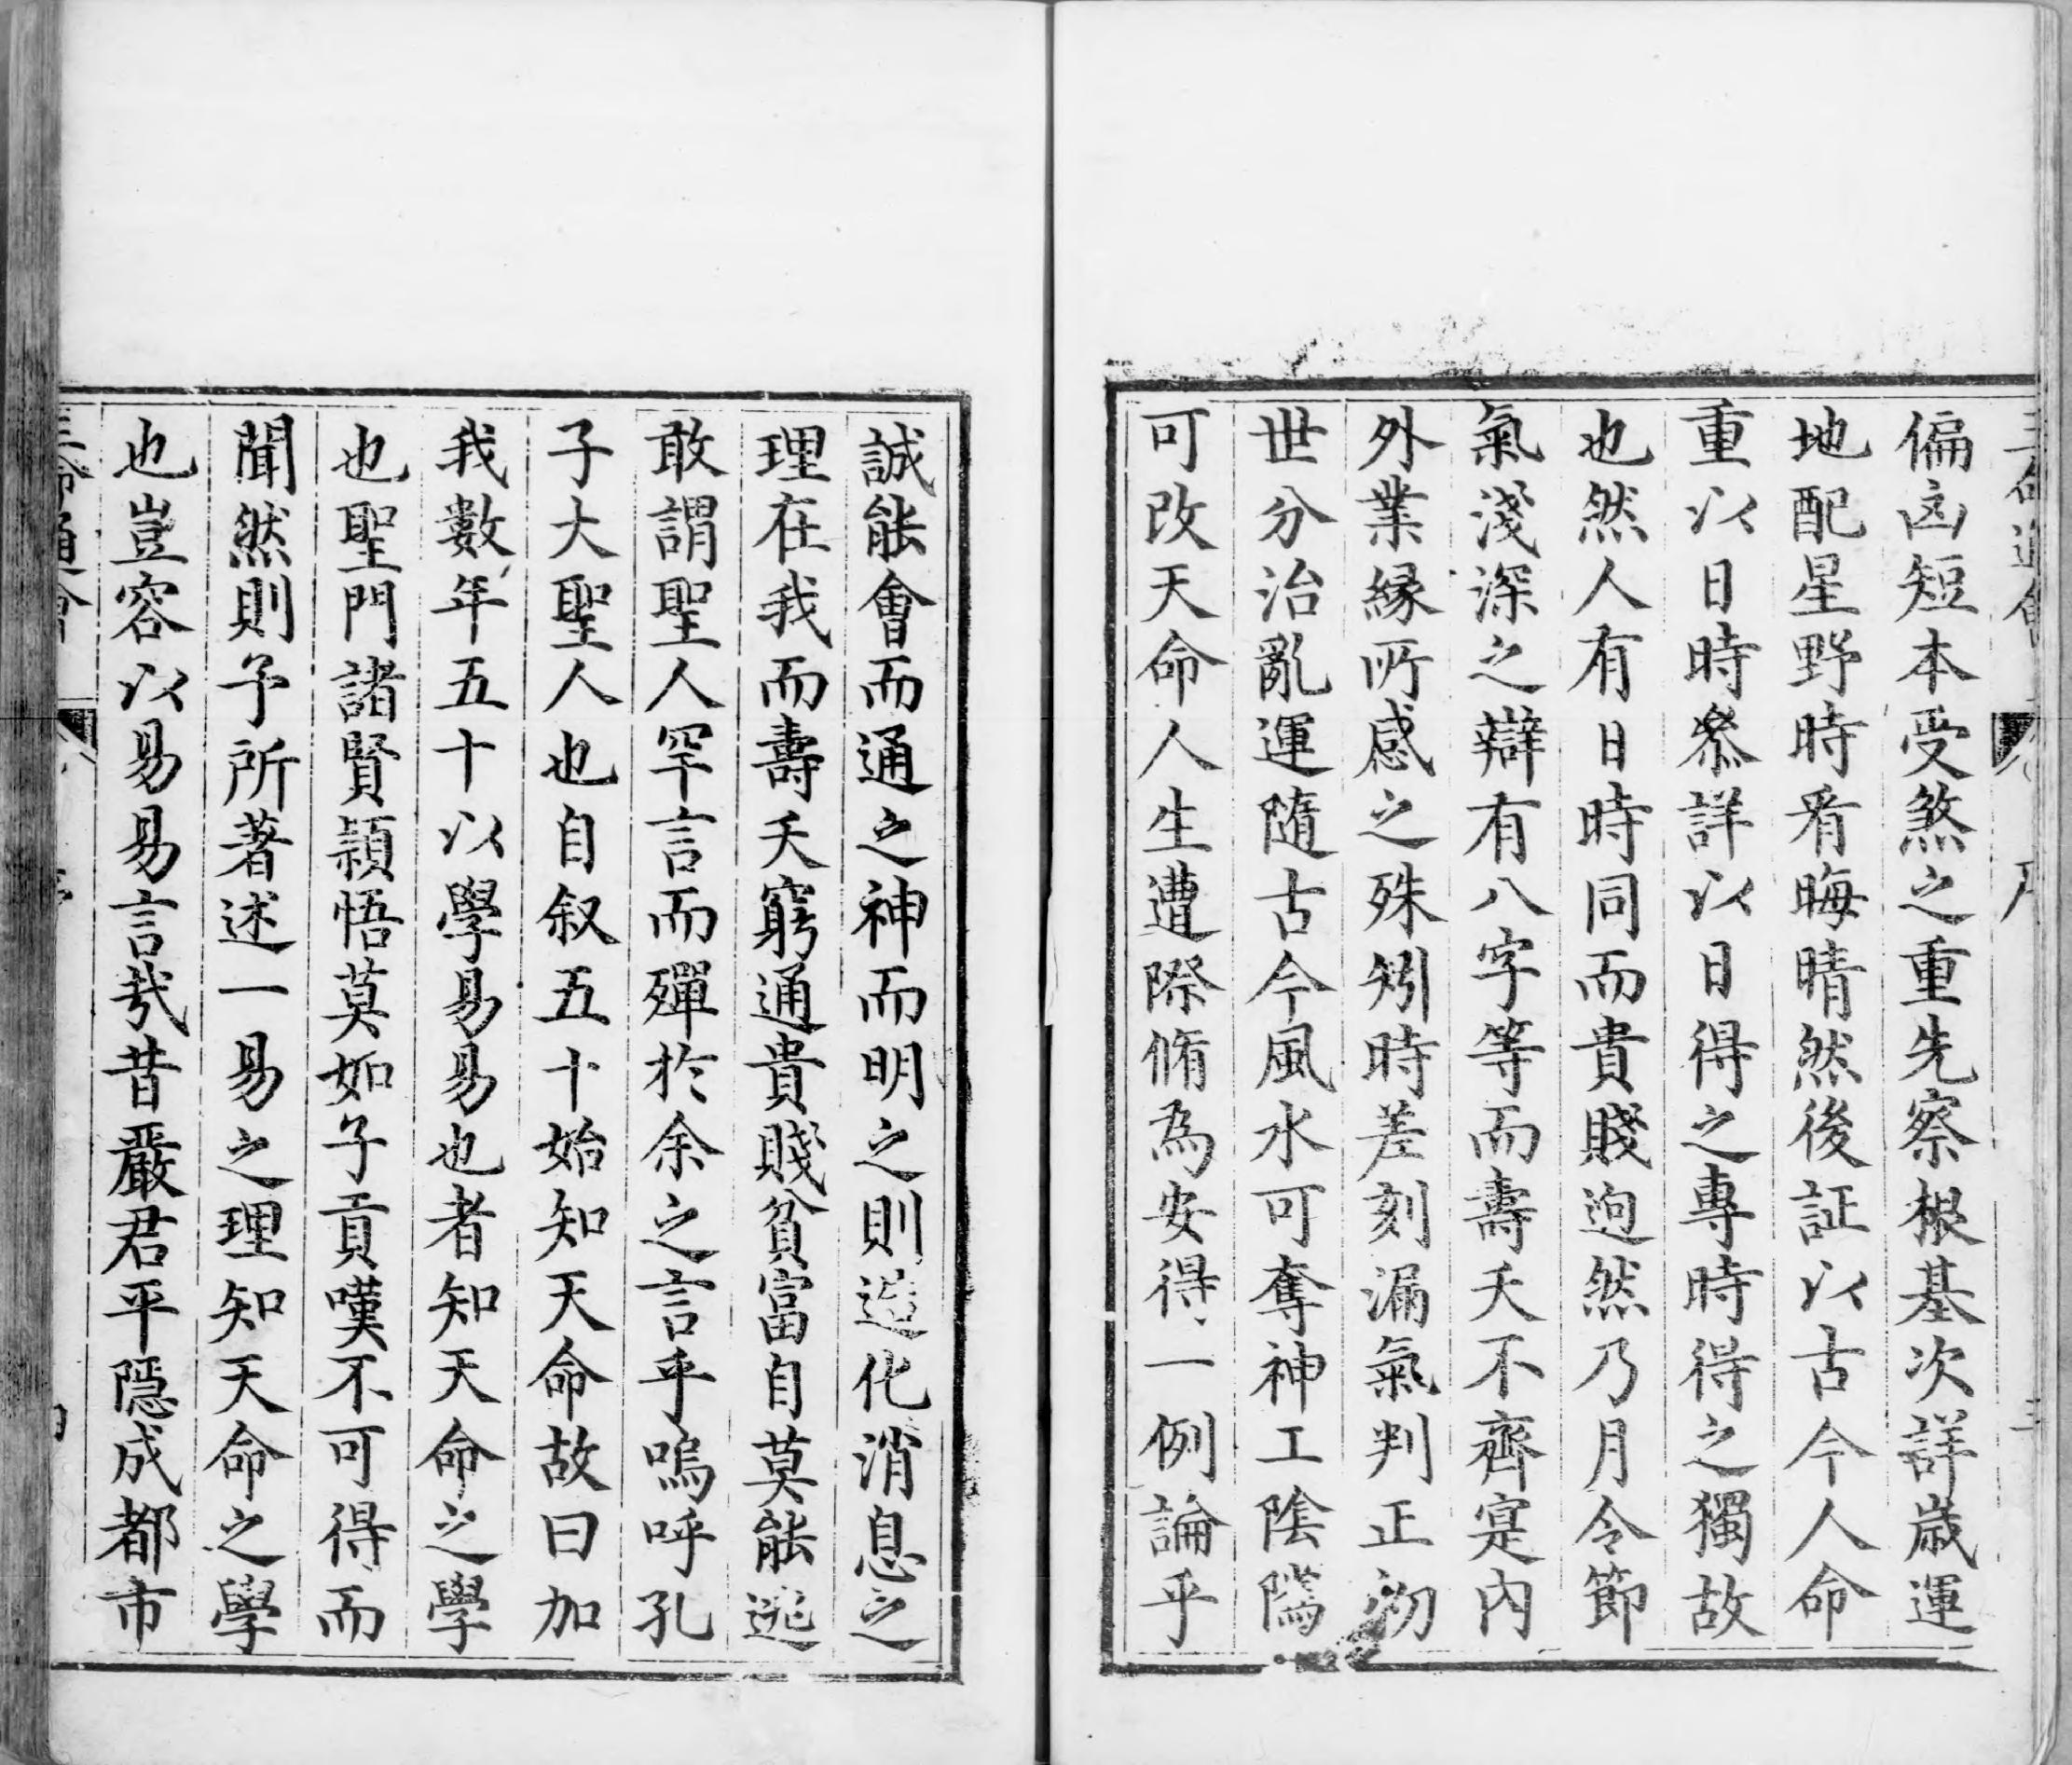 偏凶短本受煞之重先察根基次詳歲運
地配星野時看晦晴然後証以古今人命
重以日時叅詳以日得之專時得之獨故
也然人有日時同而貴賤逈然乃月令節
氣淺深之辯有八字等而壽夭不齊寔內
外業緣所感之殊矧時差刻漏氣判正初
世分治亂運隨古今風水可奪神工陰隲
可改天命人生遭際脩為安得一例論乎
誠能會而通之神而明之則造化消息之
理在我而壽夭窮通貴賤貧富自莫能逃
敢謂聖人罕言而殫於余之言乎嗚呼孔
子大聖人也自叙五十始知天命故曰加
我數年五十以學易易也者知天命之學
也聖門諸賢頴悟莫如子貢嘆不可得而
聞然則予所著述一易之理知天命之學
也豈容以易易言㢤昔嚴君平隱成都市